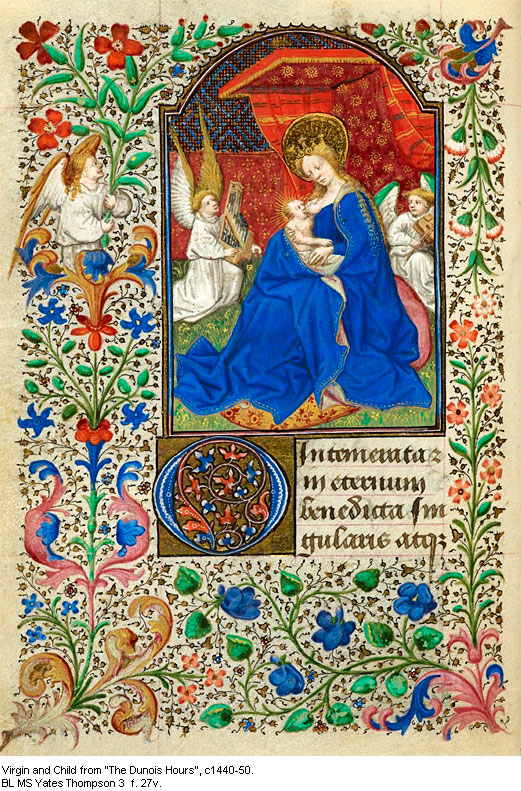 O Intemerata ꝛ
in eternum
benedicta sin
gularis atqꝫ
Virgin and Child from "The Dunois Hours", c1440-50.
BL MS Yates Thompson 3 f. 27v.